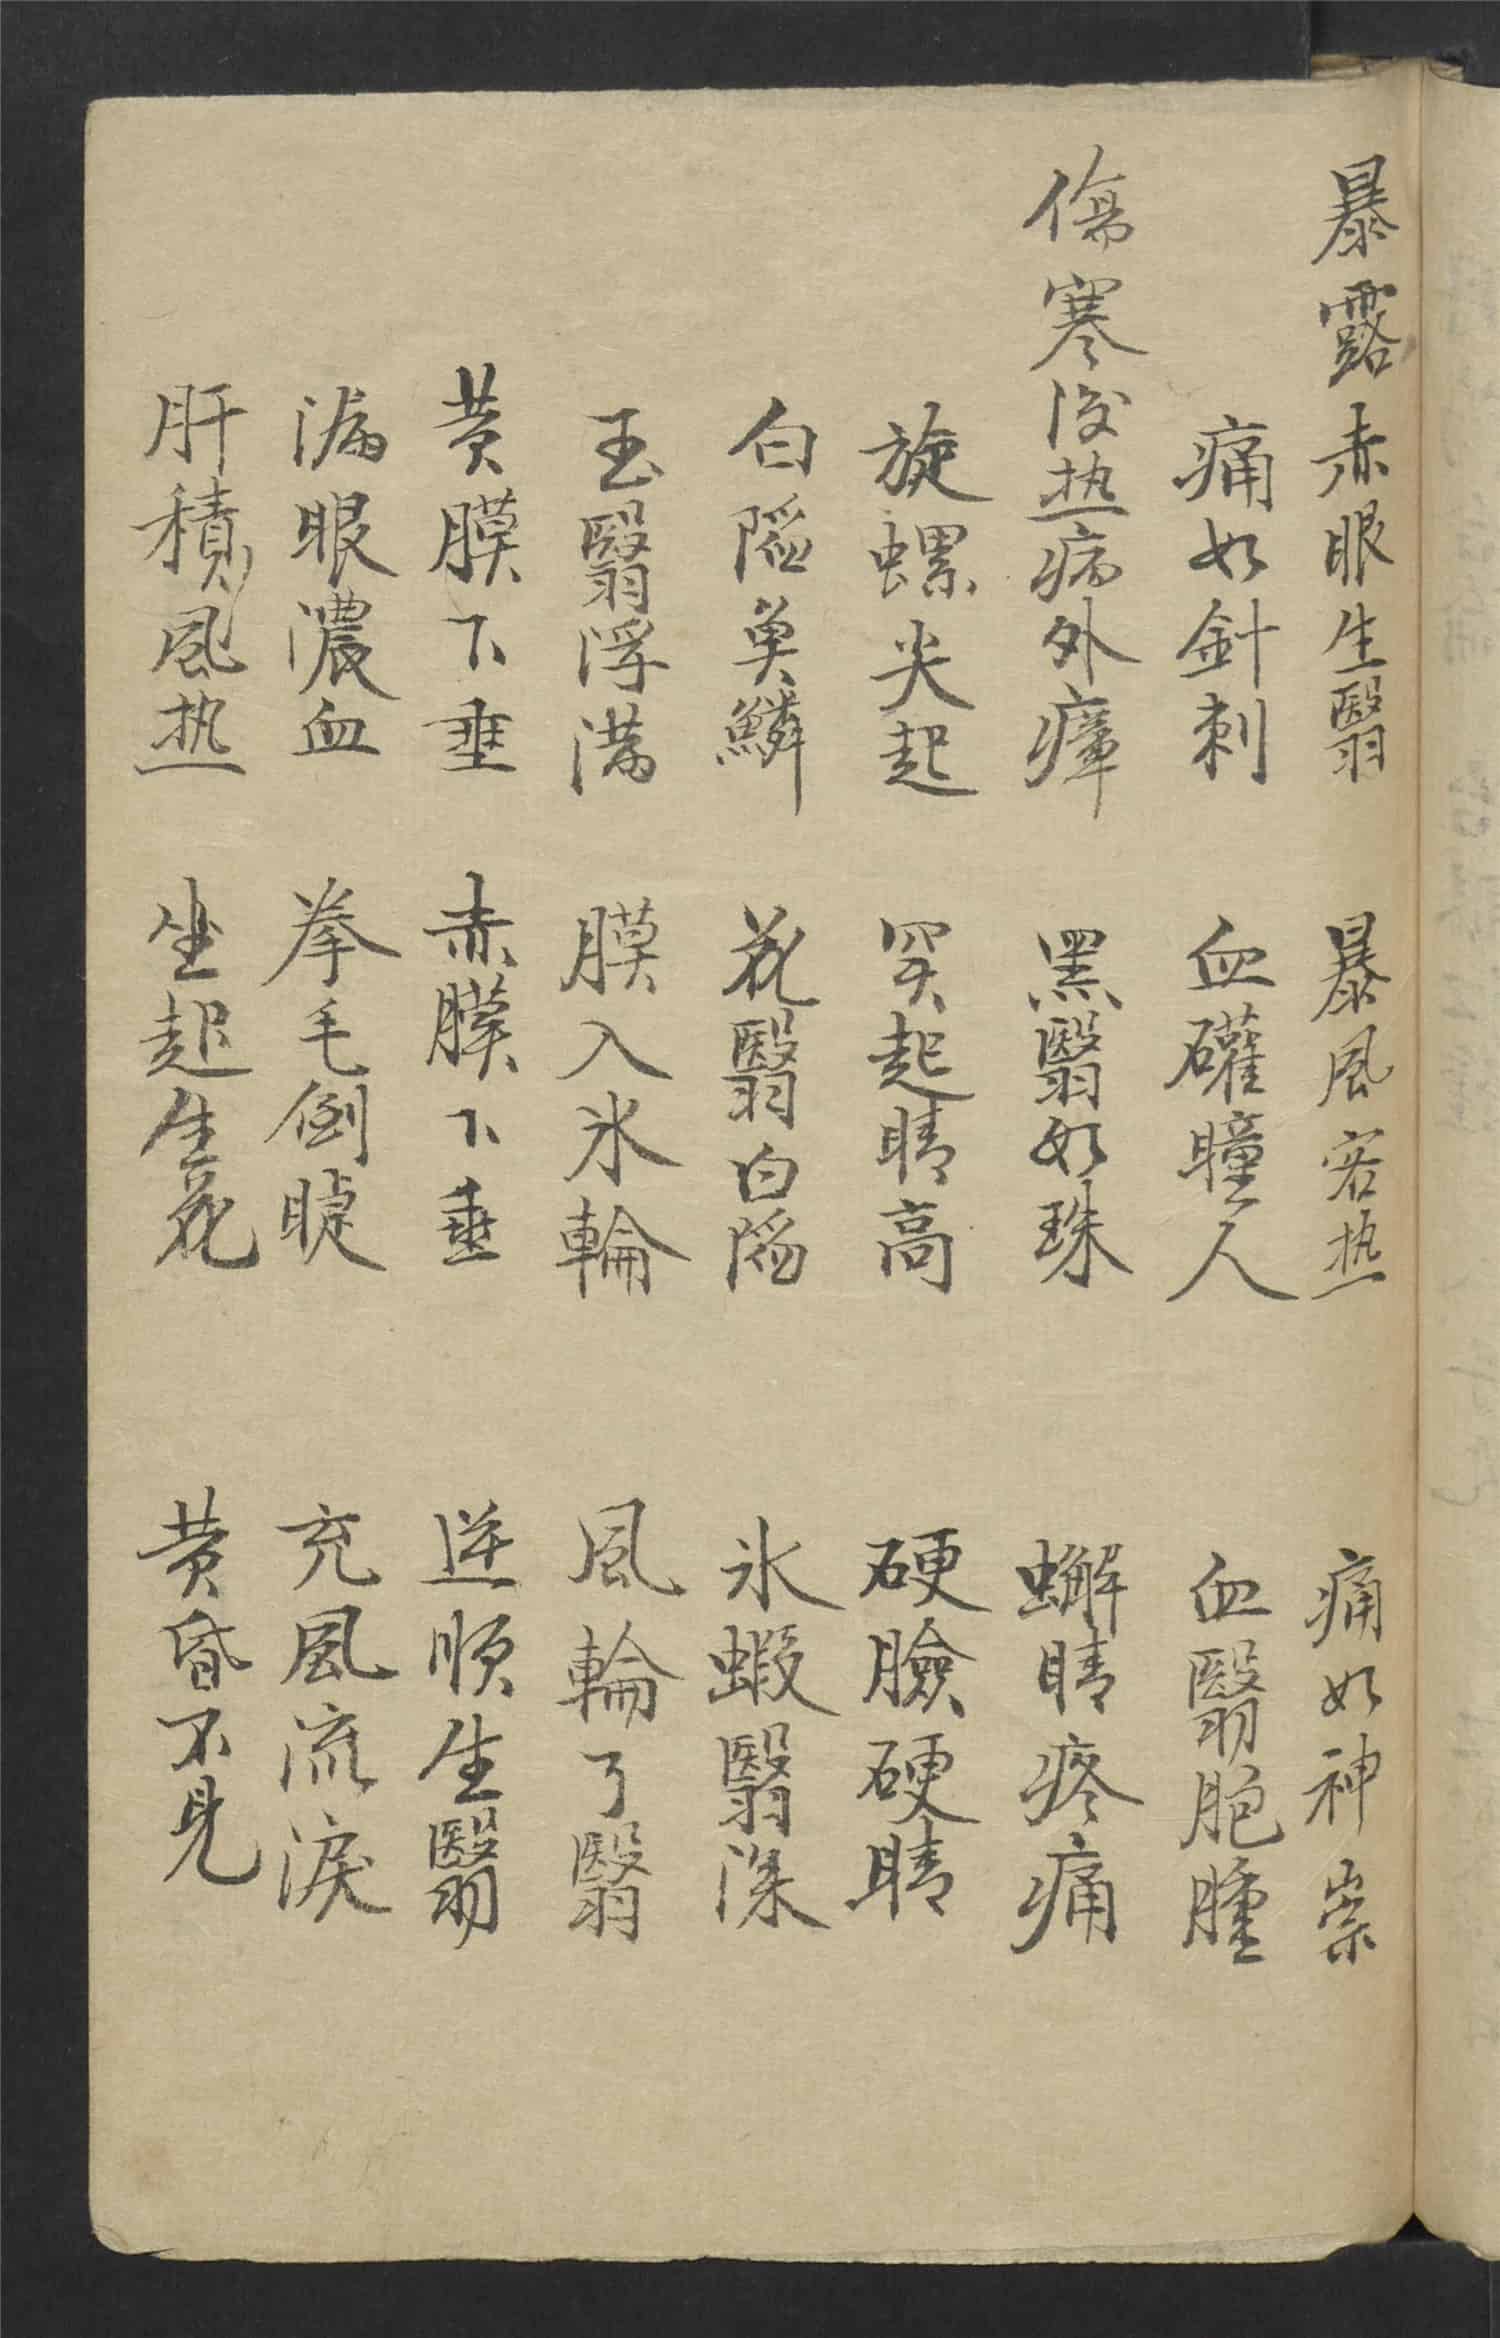 暴露赤眼生翳 暴風客热 痛如神祟
痛如針刺 血礶瞳人 血翳胞腫
傷寒後热病外瘴 黑翳如珠 蠏睛疼痛
旋螺尖起 突起睛高 硬臉硬睛
白陷魚鱗 花翳白陷 氷蝦翳深
玉翳浮满 膜入氷輪 風輪了翳
黄膜下垂 赤膜下垂 逆順生翳
漏眼濃血 拳毛倒睫 充風流淚
肝積風热 坐起生花 黄昏不見